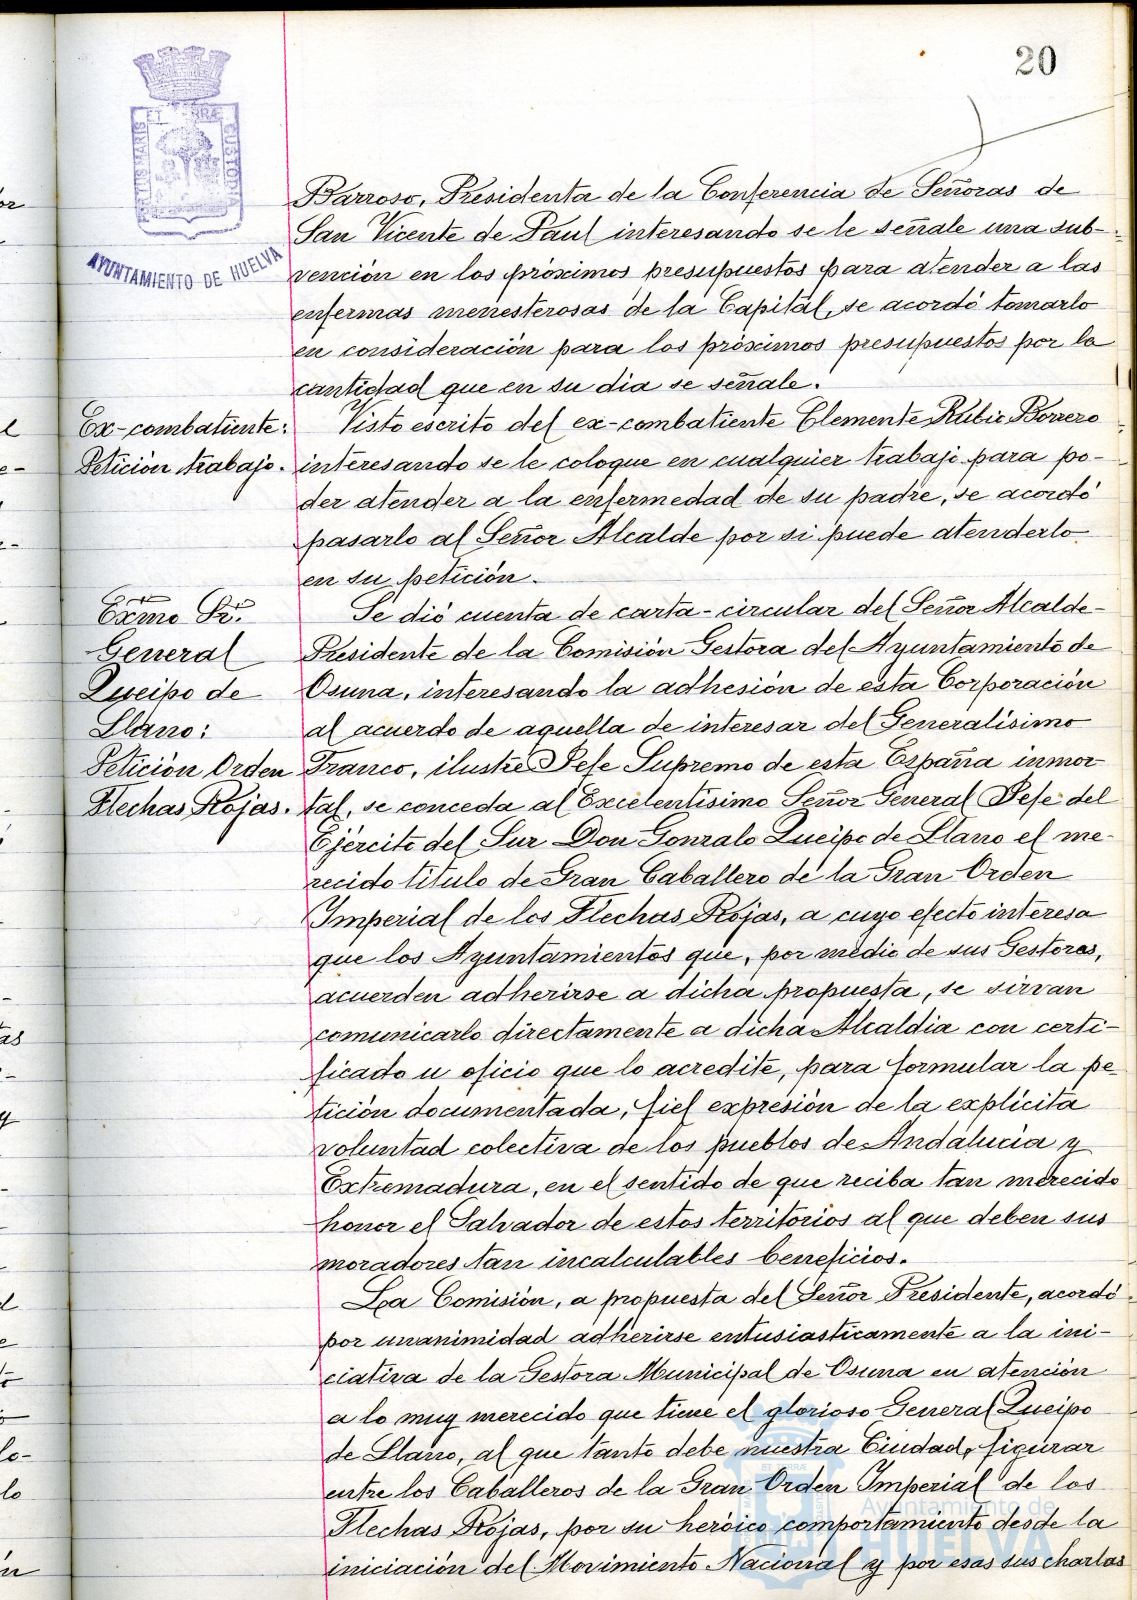 20
PORTUS MARIS ET TERRÆ CUSTODIA
AYUNTAMIENTO DE HUELVA
Barroso, Presidenta de la Conferencia de Señoras de
San Vicente de Paul interesando se le señale una sub-
vención en los próximos presupuestos para atender a las
enfermas menesterosas de la Capital, se acordó tomarlo
en consideración para los próximos presupuestos por la
cantidad que en su dia se señale.
Ex-combatiente:
Petición trabajo.
Visto escrito del ex-combatiente Clemente Rubio Borrero
interesando se le coloque en cualquier trabajo para po-
der atender a la enfermedad de su padre, se acordó
pasarlo al Señor Alcalde por si puede atenderlo
en su petición.
Exmo Sr.
General
Queipo de
Llano:
Petición Orden
Flechas Rojas.
Se dió cuenta de carta-circular del Señor Alcalde-
Presidente de la Comisión Gestora del Ayuntamiento de
Osuna, interesando la adhesión de esta Corporación
al acuerdo de aquella de interesar del Generalísimo
Franco, ilustre Jefe Supremo de esta España inmor-
tal, se conceda al Excelentísimo Señor General Jefe del
Ejército del Sur Don Gonzalo Queipo de Llano el me-
recido titulo de Gran Caballero de la Gran Orden
Imperial de los Flechas Rojas, a cuyo efecto interesa
que los Ayuntamientos que, por medio de sus Gestores,
acuerden adherirse a dicha propuesta, se sirvan
comunicarlo directamente a dicha Alcaldia con certi-
ficado u oficio que lo acredite, para formular la pe-
tición documentada, fiel expresión de la explícita
voluntad colectiva de los pueblos de Andalucia y
Extremadura, en el sentido de que reciba tan merecido
honor el Salvador de estos territorios al que deben sus
moradores tan incalculables beneficios.
La Comisión, a propuesta del Señor Presidente, acordó
por unanimidad adherirse entusiasticamente a la ini-
ciativa de la Gestora Municipal de Osuna en atención
a lo muy merecido que tiene el glorioso General Queipo
de Llano, al que tanto debe nuestra Ciudad, figurar
entre los Caballeros de la Gran Orden Imperial de los
Flechas Rojas, por su heróico comportamiento desde la
iniciación del Movimiento Nacional y por esas sus charlas
Ayuntamiento de
HUELVA